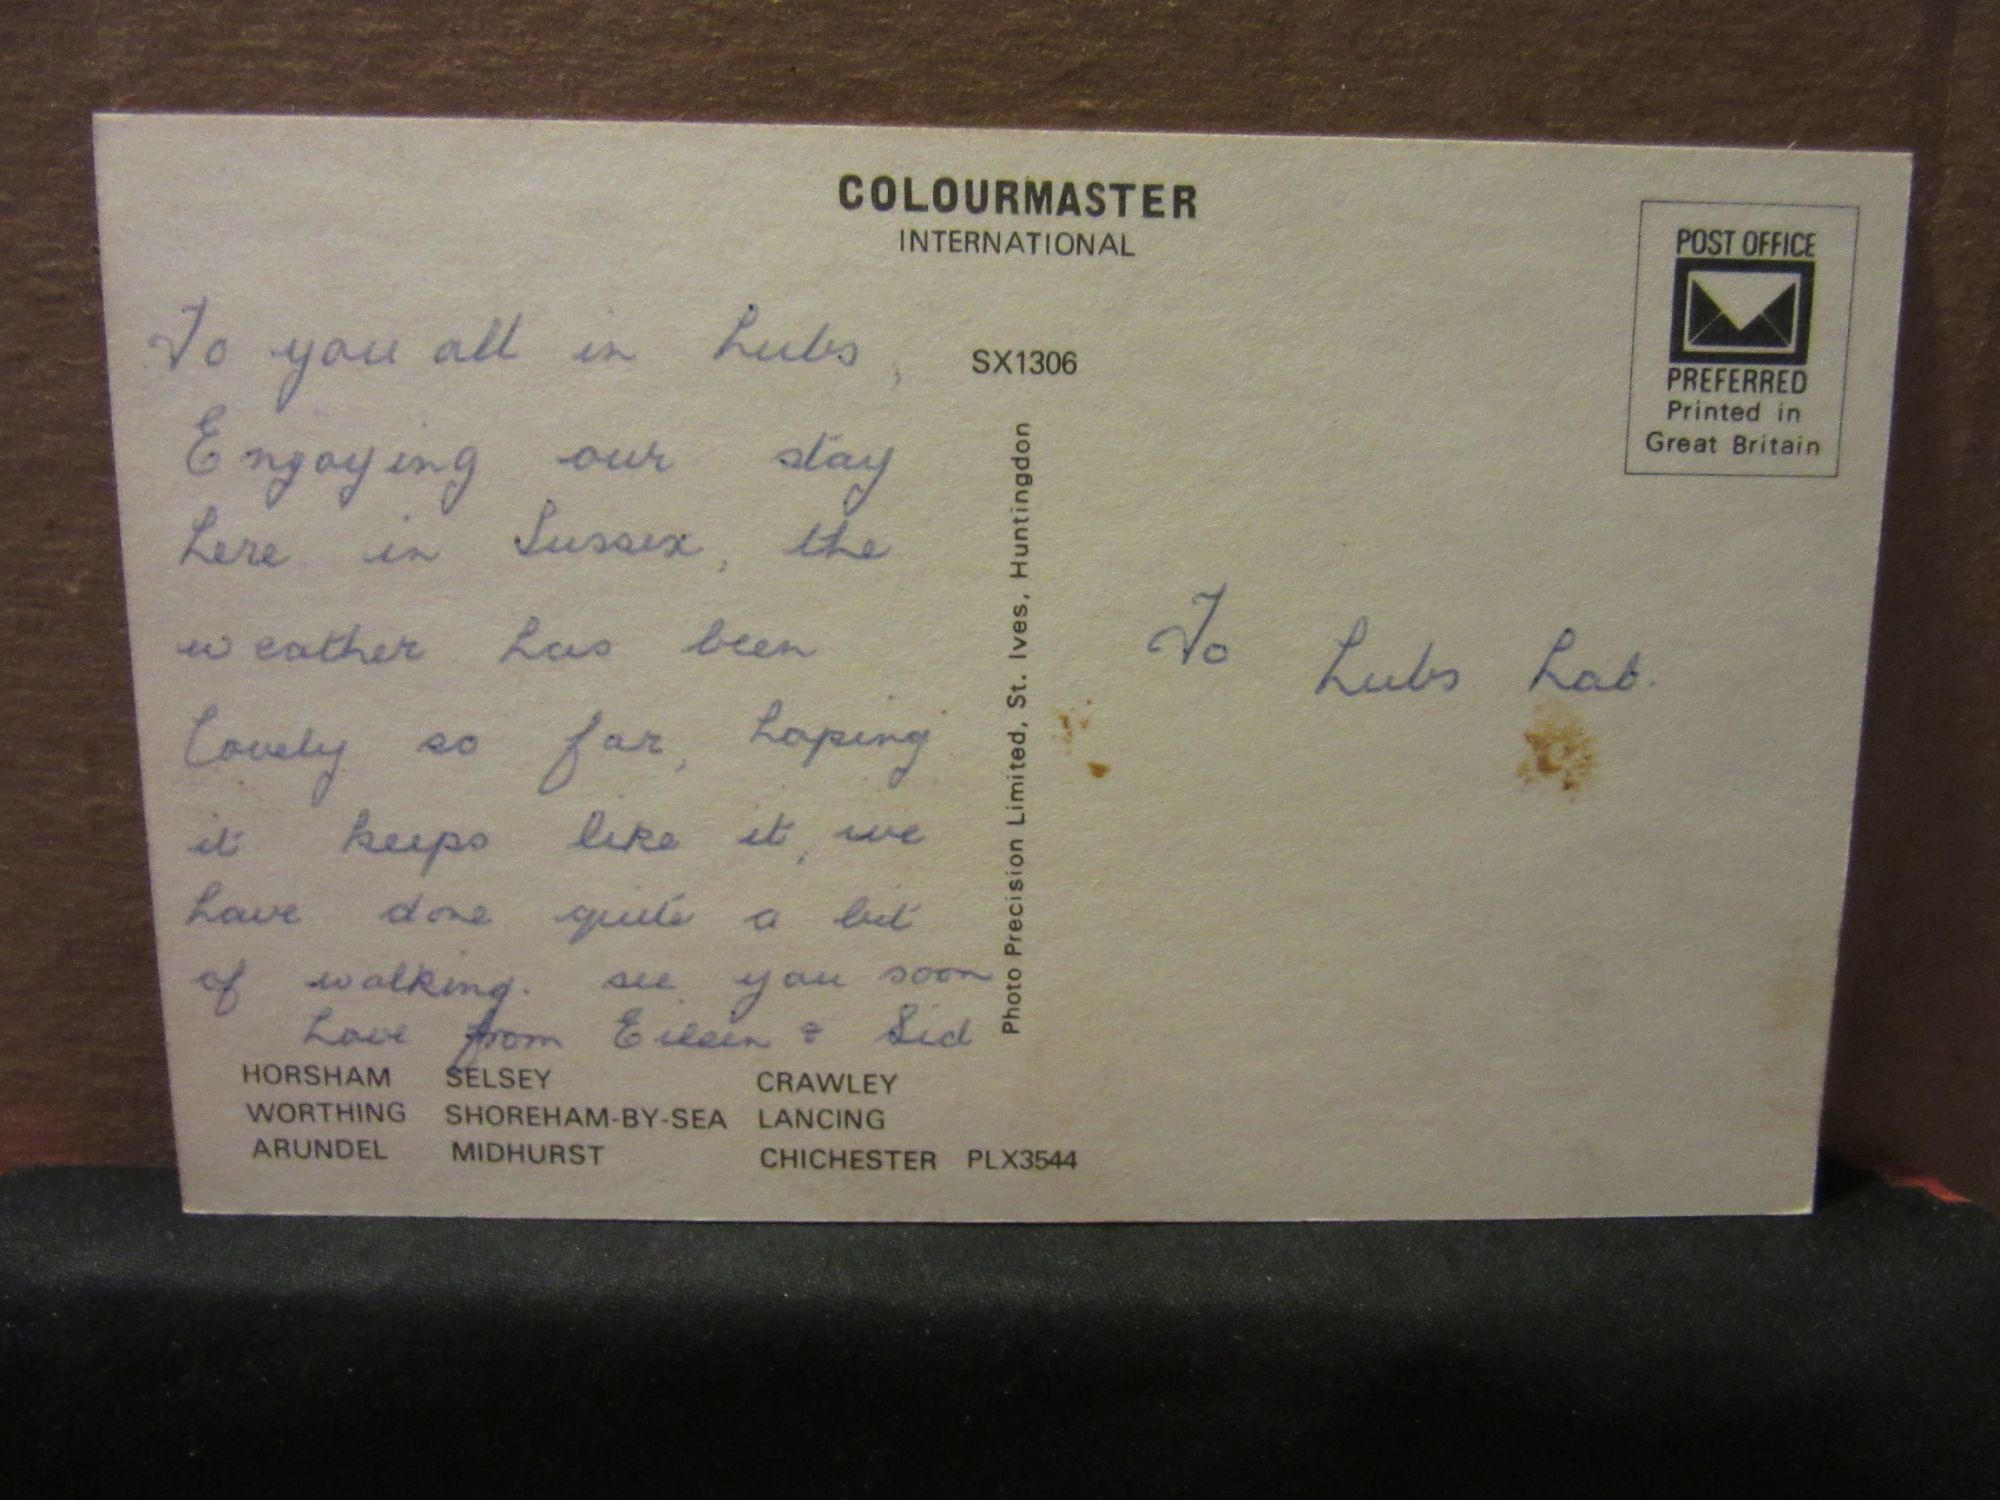 COLOURMASTER
INTERNATIONAL
POST OFFICE
PREFERRED
Printed in
Great Britain
SX1306
To you all in Lubs,
Engoying our stay
here in Sussex, the
weather has been
lovely so far, hoping
it keeps like it, we
have done quite a bit
of walking. see you soon
Love from Eileen & Sid
Photo Precision Limited, St. Ives, Huntingdon
To Lubs Lab.
HORSHAM SELSEY CRAWLEY
WORTHING SHOREHAM-BY-SEA LANCING
ARUNDEL MIDHURST CHICHESTER PLX3544